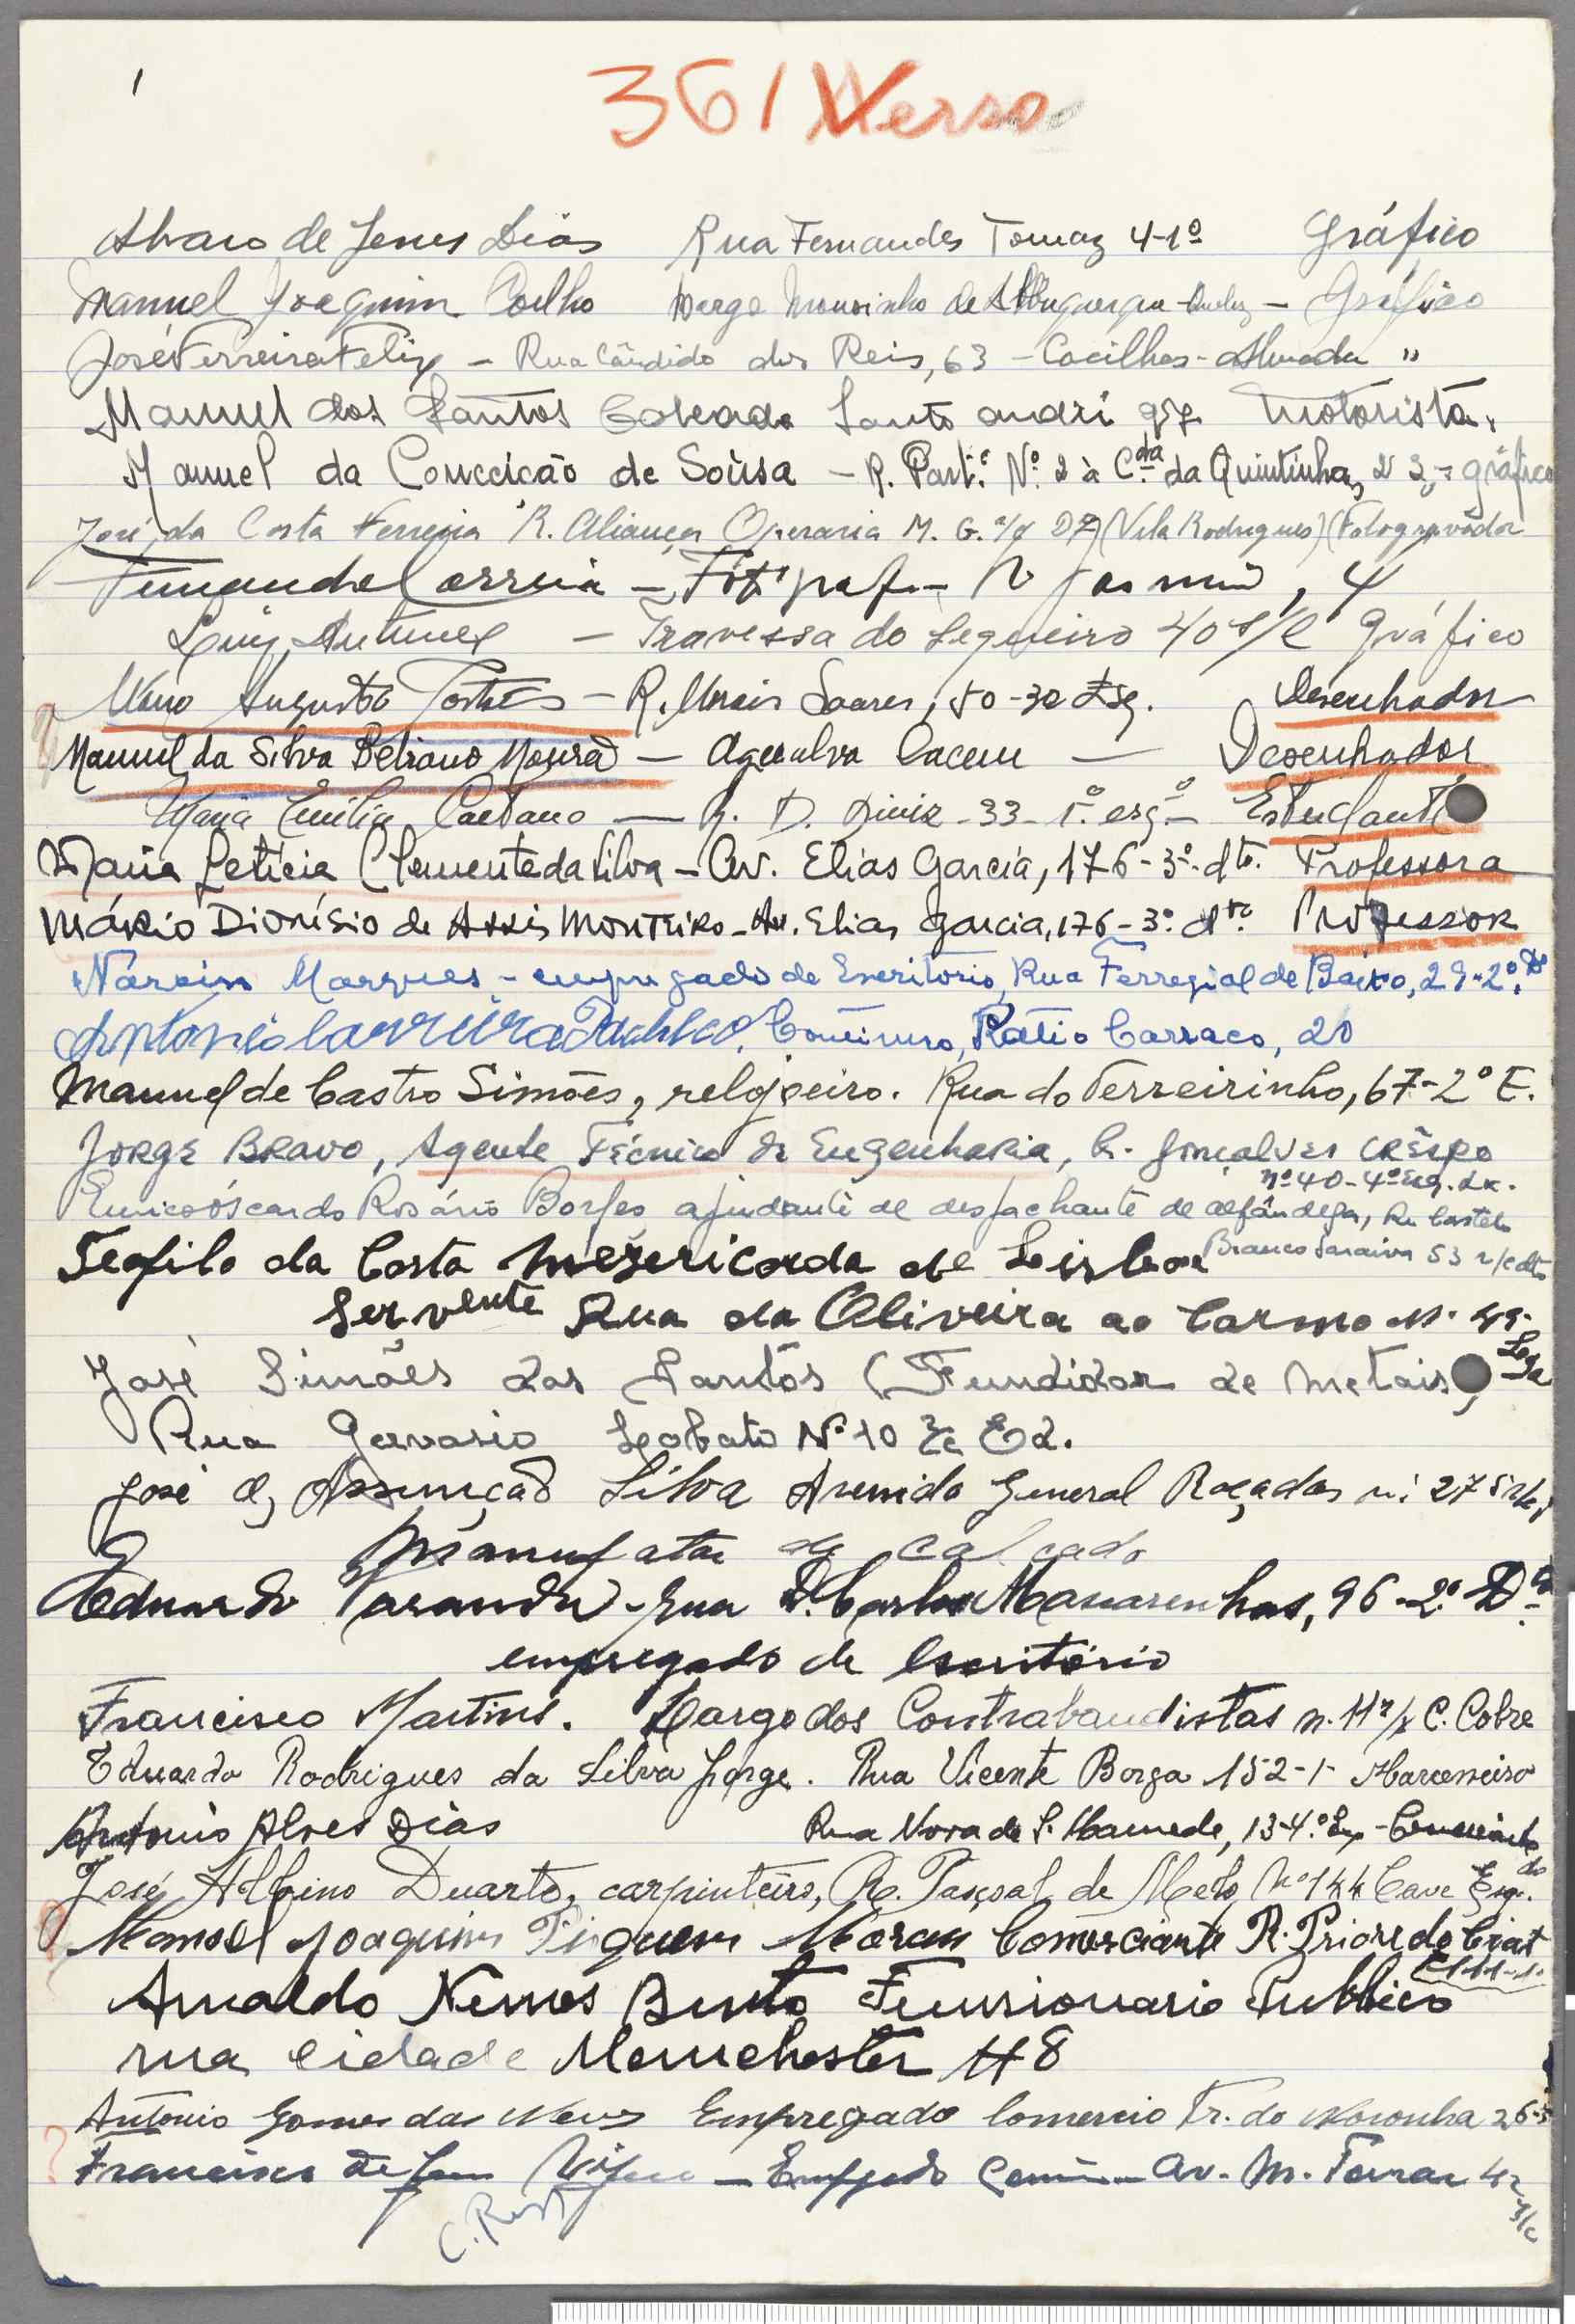 361 Verso
Alvaro de Jesus Dias Rua Fernandes Tomaz 4-1º Gráfico
Manuel Joaquim Coelho Largo Mousinho de Albuquerque - Queluz - Gráfico
José Ferreira Felix - Rua Cândido dos Reis, 63 - Cacilhas - Almada "
Manuel dos Santos Santo andré 97 motorista.
Manuel da Conceição de Sousa - R. Part. Nº 2 à Cda da Quintinha, 2 - gráfico
José da Costa Ferreira R. Aliança Operaria M. G. (Vila Rodrigues) (Fotogravador
Fernando Correia - - R Jasmim, 4
Luiz Antunes - Travessa do Sequeiro 40 r/c Gráfico
Augusto - R. Morais Soares, 50-3º Esq. Desenhador
Manuel da Silva Moura - Agualva Cacem - Desenhador
Maria Emília Caetano - R. D. Diniz - 33 - 1º esq. - Estudante
Maria Letícia Clemente da Silva - Av. Elias Garcia, 176 - 3º. dto. Professora
Mário Dionísio de Assis Monteiro - Av. Elias Garcia, 176 - 3º dto. Professor
Marques - empregado de Escritorio, Rua Ferregial de Baixo, 29-2º
Antonio Contínuo, Patio Carraco, 20
Manuel de Castro Simões, relojoeiro. Rua do Terreirinho, 67-2º E.
Jorge Bravo, Agente Técnico de Engenharia, R. Gonçalves Crêspo
nº 40-4º Esq. Lx.
Eurico Óscar do Rosário Borges ajudante de despachante de alfândega, Ru Castelo
Branco Saraiva 53 r/c dto
Teofilo da Costa Mezericorda de Lisboa
Servente Rua da Oliveira ao Carmo Nº 49.
José Simões dos Santos (Fundidor de metais,
Rua Gervasio Lobato Nº 10
José d' Assunção Silva Avenida General Roçadas nº 27
Manufator de Calçado
Eduardo - Rua D. Carlos Mascarenhas, 96-2º Dº
empregado de Escritório
Francisco Martins. Largo dos Contrabandistas n. 11 r/c C. Cobre
Eduardo Rodrigues da Silva Jorge. Rua Vicente Borga 152-1- Marceneiro
Antonio Alves Dias Rua Nova de S. Mamede, 13-4º Esq -
José Albino Duarte, carpinteiro, R. Pascoal de Melo Nº 144 Cave Esq.
Manoel Joaquim Moran Comerciante R. Prior do Crat
111-1º
Arnaldo Nunes Bento Funsionario Publico
rua cidade Menchester 48
Antonio Gomes das Neves Empregado Comercio Tr. do Noronha 26-
Francisco de - - Av. M.
r/c